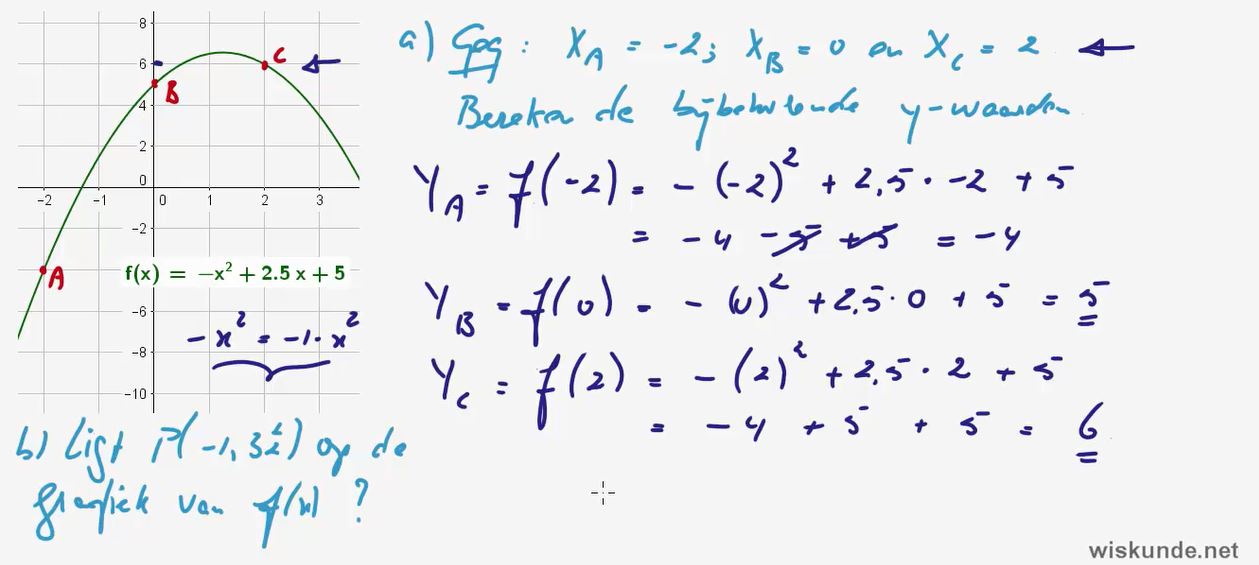 8
6
4
2
0
-2
-6
-8
-10
-2 -1 0 1 2 3
A
B
C
f(x) = −x² + 2.5 x + 5
-x² = -1·x²
a) Geg : X_A = -2; X_B = 0 en X_C = 2
Bereken de bijbehorende y-waarden
Y_A = f(-2) = -(-2)² + 2,5 · -2 + 5
= -4 -5 +5 = -4
Y_B = f(0) = -(0)² + 2,5 · 0 + 5 = 5
Y_C = f(2) = -(2)² + 2,5 · 2 + 5
= -4 + 5 + 5 = 6
b) Ligt P(-1, 3½) op de
grafiek van f(x) ?
wiskunde.net